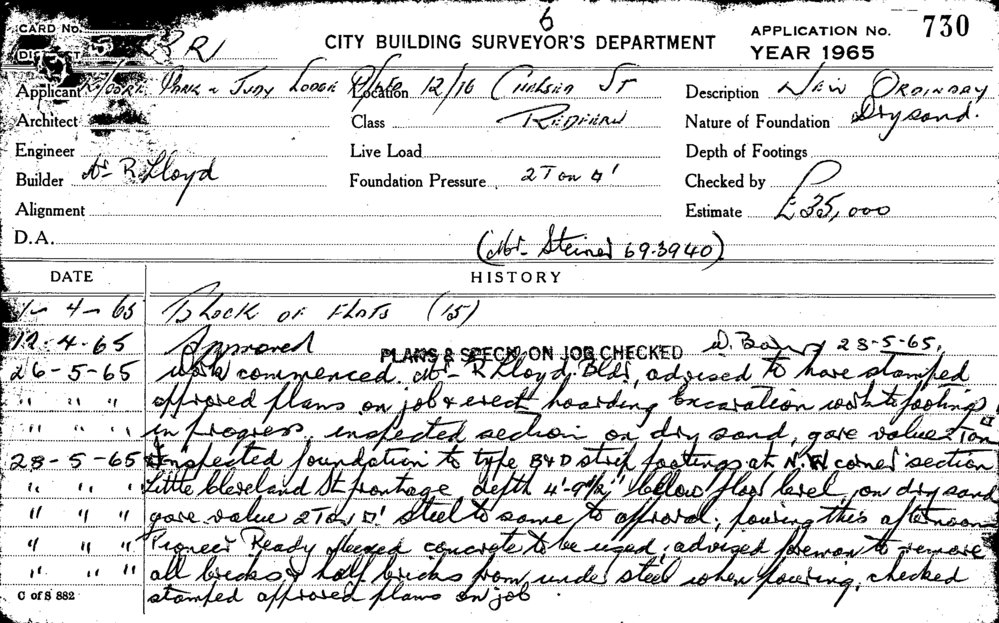 6
CARD No.
CITY BUILDING SURVEYOR'S DEPARTMENT
APPLICATION No. 730
DISTRICT 5
YEAR 1965
Applicant Park & Judy Lodge P/L Location 12/16 Chelsea St Description New Ordinary
Architect Class Redfern Nature of Foundation Dry sand.
Engineer Live Load Depth of Footings
Builder Mr R. Lloyd Foundation Pressure 2 Ton □' Checked by
Alignment Estimate £35,000
D.A. (Mr. Steiner 69.3940)
DATE HISTORY
1-4-65 Block of Flats (15)
12.4.65 Approved PLANS & SPECN. ON JOB CHECKED 28-5-65.
26-5-65 Work commenced. Mr R Lloyd. Bldr, advised to have stamped
" " " approved plans on job & erect hoarding Excavation work to footings
" " " in progress, inspected section on dry sand, gave value 2 Ton □'
28-5-65 Inspected foundation to type B&D strip footings at N.W corner section
" " " Little Cleveland St frontage depth 4'-9½" below floor level, on dry sand
" " " gave value 2 Ton □' steel to same to approval; pouring this afternoon
" " " Pioneer Ready Mixed concrete to be used; advised foreman to remove
" " " all bricks & half bricks from under steel when pouring, checked
C of S 882 stamped approved plans on job